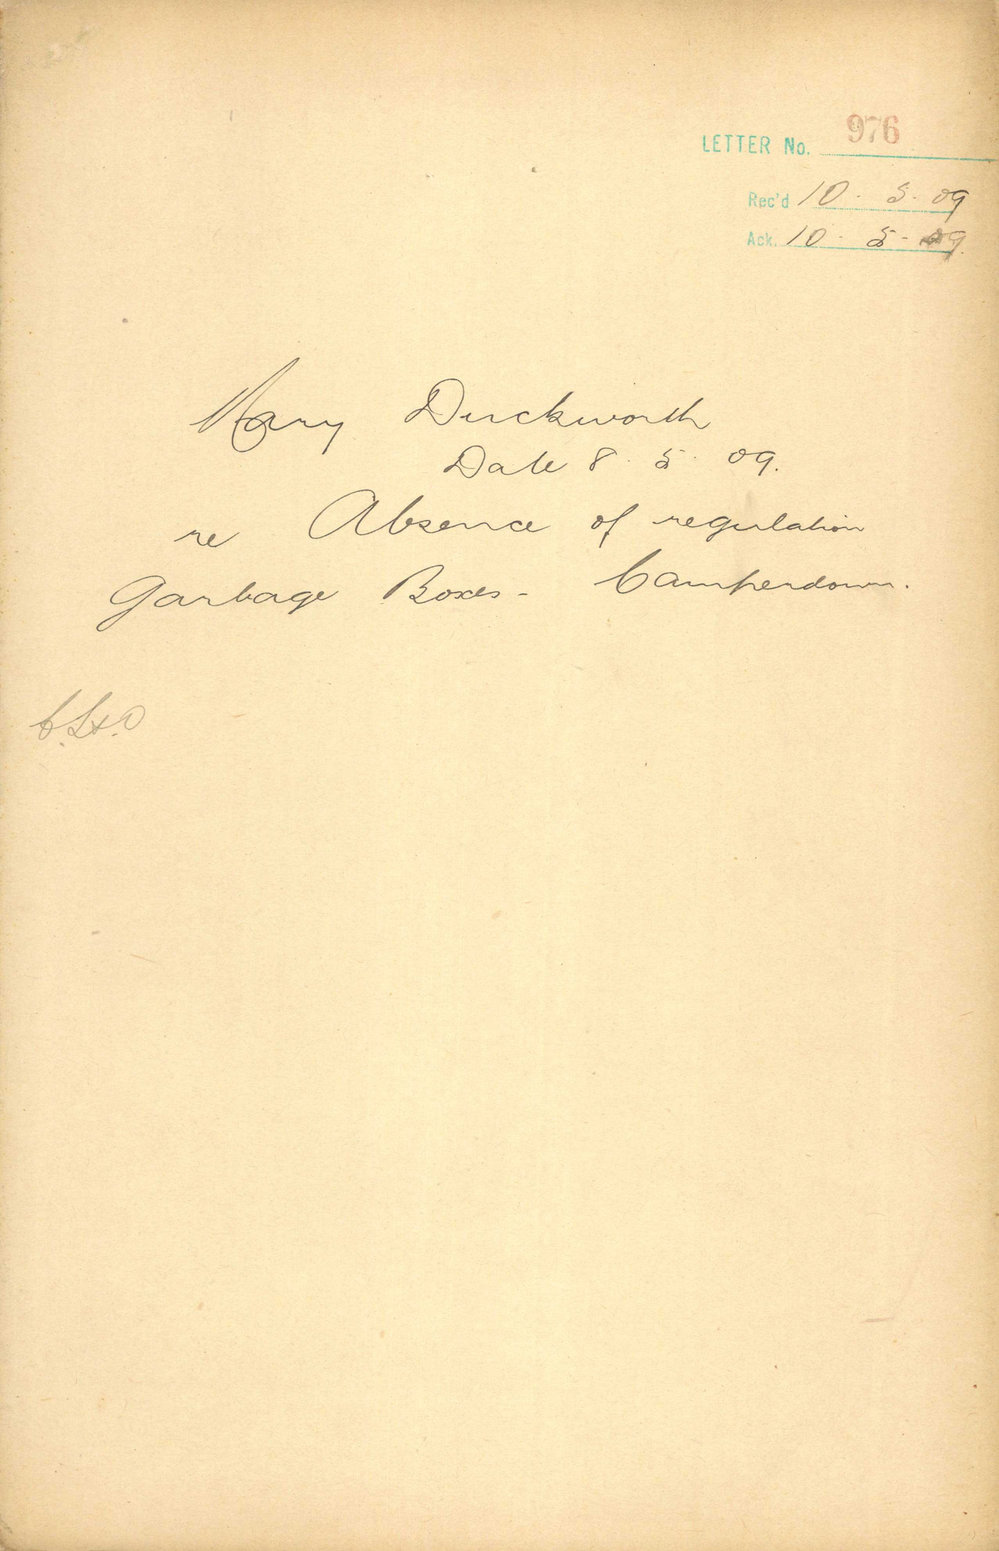 LETTER No. 976
Rec'd 10 . 5 . 09
Ack. 10 . 5 . 09
Mary Duckworth
Date 8 . 5 . 09.
re Absence of regulation
Garbage Boxes - Camperdown.